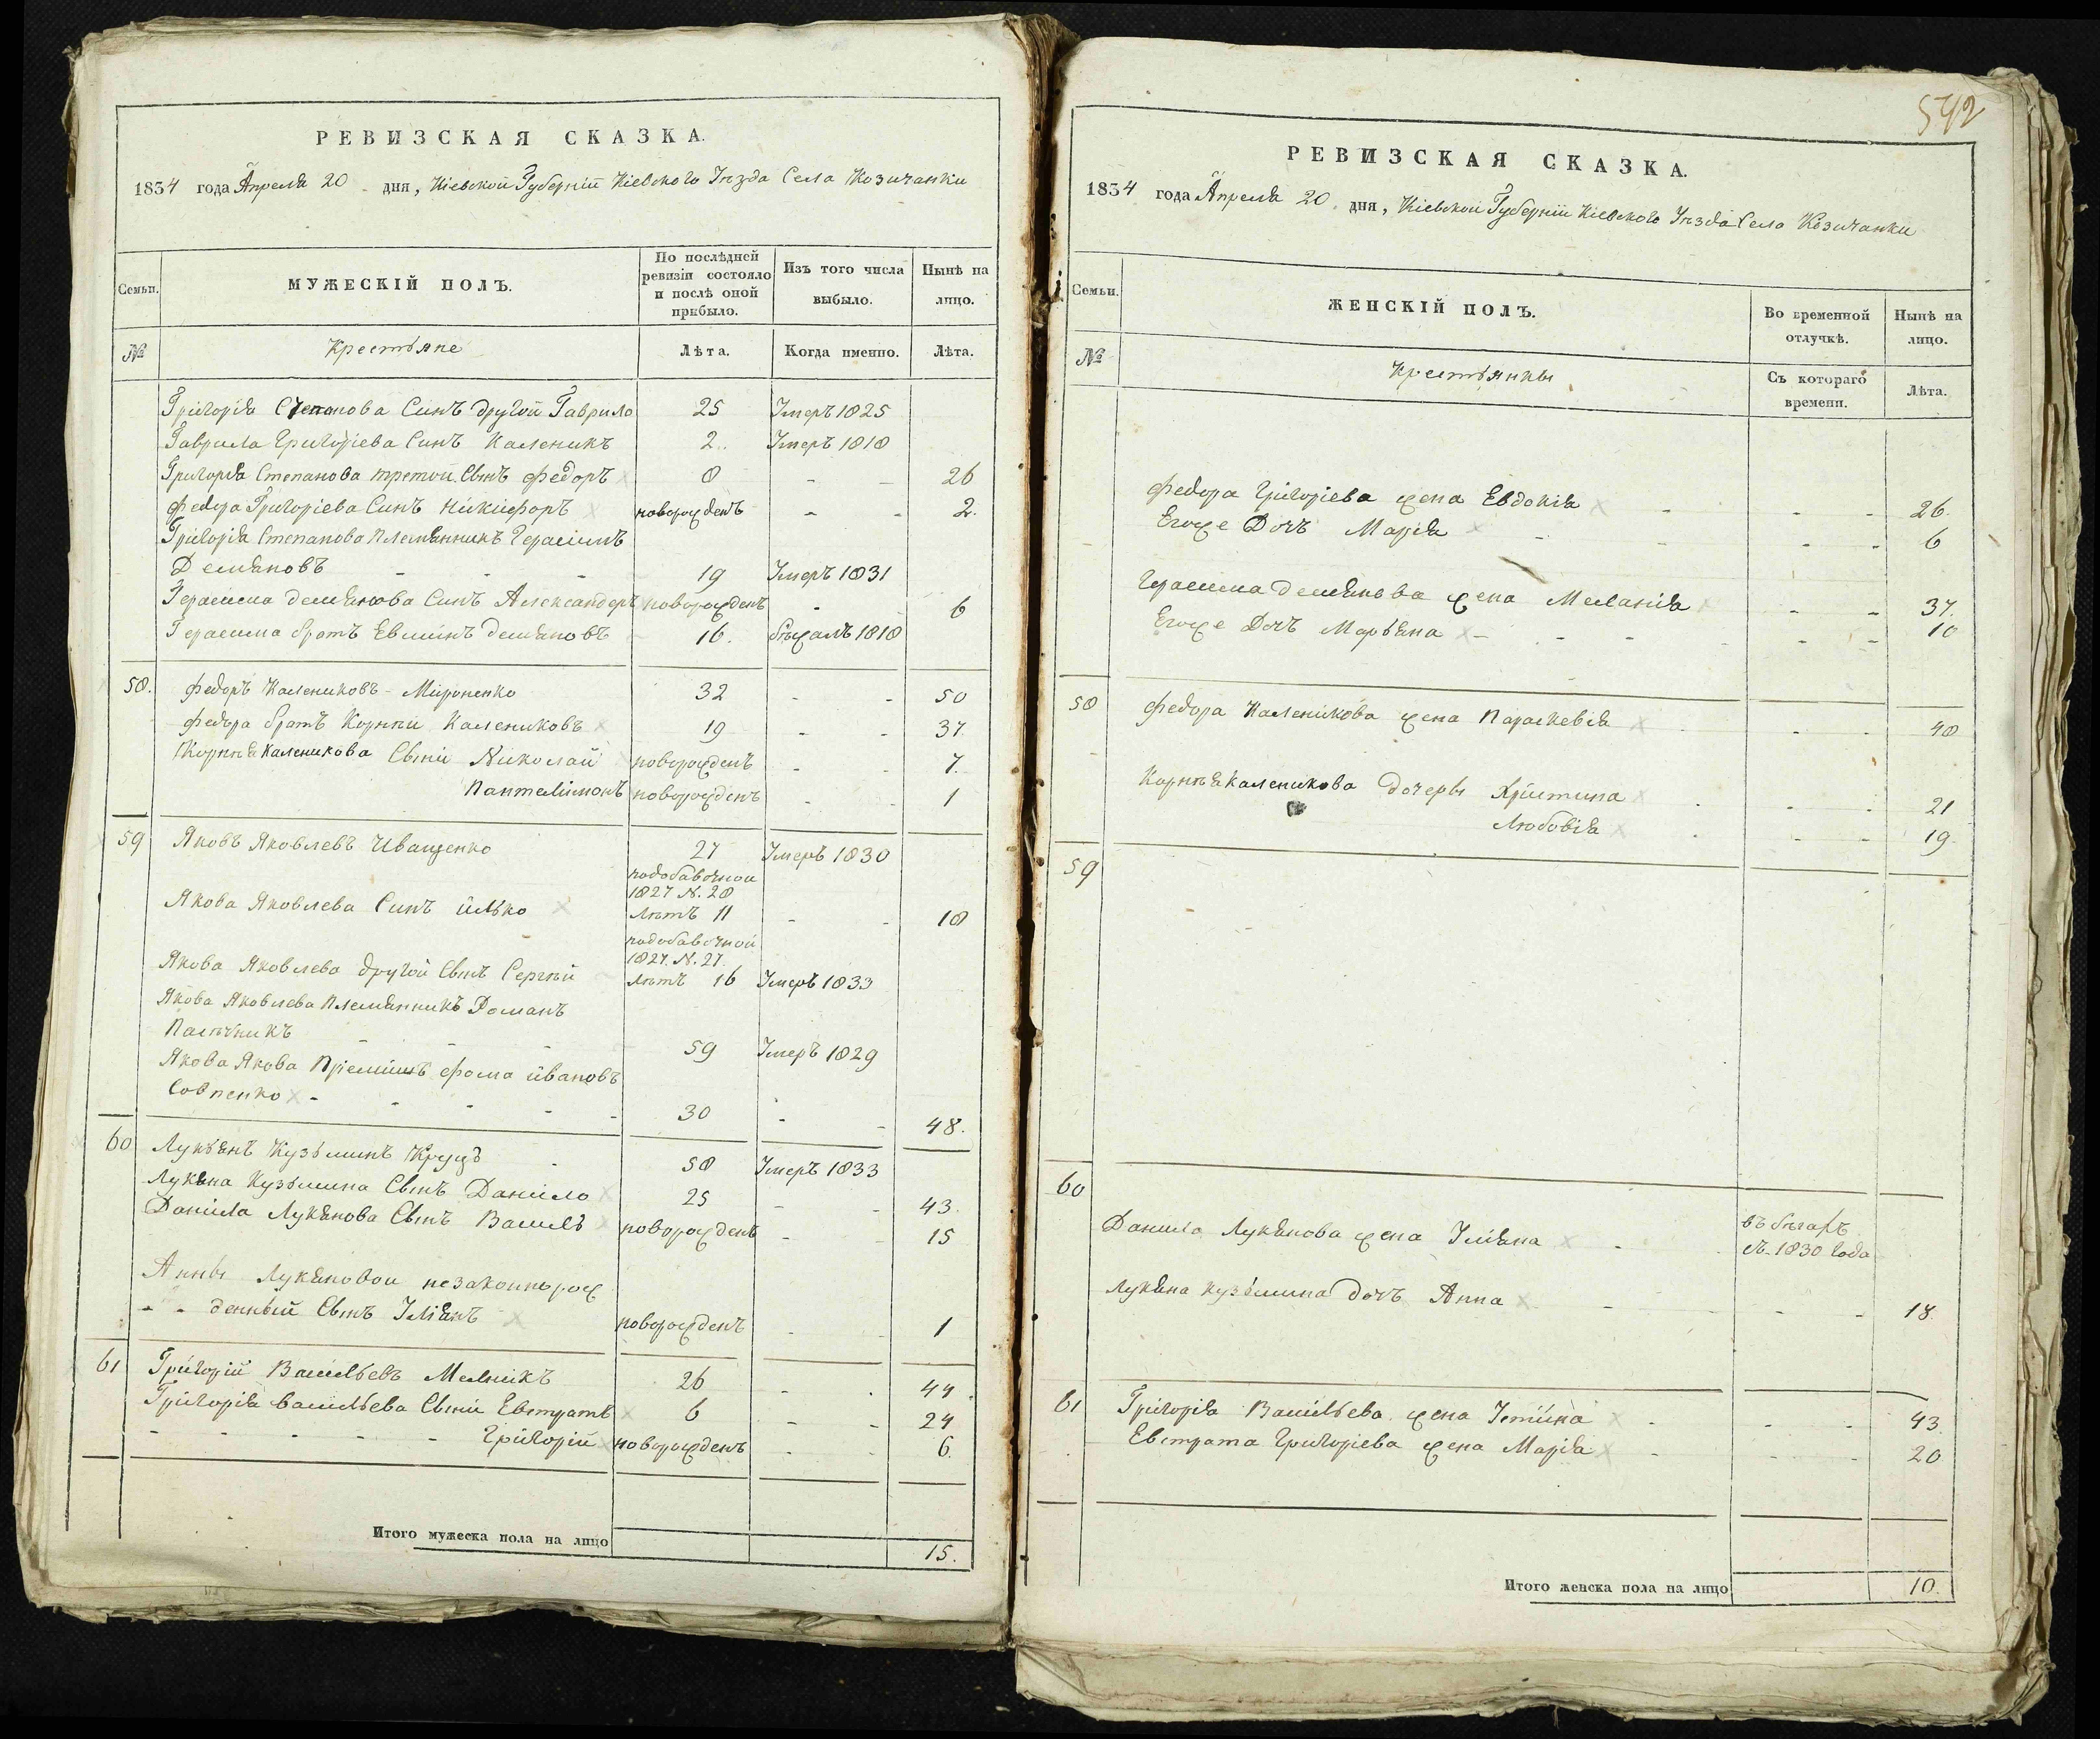 РЕВИЗСКАЯ СКАЗКА.
1834 года Апреля 20 дня, Кіевской Губерніи Кіевского Уѣзда Села Козичанки
Семьи.
МУЖЕСКІЙ ПОЛЪ.
По послѣдней ревизіи состояло и послѣ оной прибыло.
Изъ того числа выбыло.
Нынѣ на лицо.
№
Крестьяне
Лѣта.
Когда именно.
Лѣта.
Григорія Степанова Синъ другой Гаврило 25 Умеръ 1825
Гаврила Григоріева Синъ Каленикъ 2 Умеръ 1818
Григорія Степанова третой Сынъ Федоръ 8 - - 26
Федора Григоріева Синъ Никифоръ новорожденъ - - 2.
Григорія Степанова Племянникъ Герасимъ
Демяновъ - - - 19 Умеръ 1831
Герасима Демянова Синъ Александеръ новорожденъ - 6
Герасима братъ Евминъ Демяновъ 16. бѣжалъ 1818
58. Федоръ Калениковъ Мироненко 32 - - 50
Федора братъ Корнѣй Калениковъ 19 - - 37
Корнѣя Каленикова Сыни Николай новорожденъ - - 7.
Пантелімонъ новорожденъ - - 1
59 Яковъ Яковлевъ Иващенко 27 Умеръ 1830
подобавочной
1827 N. 28
Якова Яковлева Синъ Илько лѣтъ 11 - - 18
подобавочной
1827. N. 27.
Якова Яковлева другой Сынъ Сергѣй лѣтъ 16 Умеръ 1833
Якова Яковлева Племянникъ Романъ
Пасѣчникъ - - - - 59 Умеръ 1829
Якова Якова Пріемишъ Фома Ивановъ
Совпенко - - - - - 30 - - 48.
60 Лукьянъ Кузьминъ Круцъ 58 Умеръ 1833
Лукяна Кузьмина Сынъ Данило 25 - - 43.
Данила Лукянова Сынъ Василь новорожденъ - - 15
Анны Лукяновой незаконнорож
- - денный Сынъ Уліянъ новорожденъ - - 1
61 Григорій Васильевъ Мельникъ 26 - - 44.
Григорія Васильева Сыни Евстратъ 6 - - 24
- - - - - Григорій новорожденъ - - 6.
Итого мужеска пола на лицо 15.
542
РЕВИЗСКАЯ СКАЗКА.
1834 года Апреля 20. дня, Кіевской Губерніи Кіевского Уѣзда Села Козичанки
Семьи.
ЖЕНСКІЙ ПОЛЪ.
Во временной отлучкѣ.
Нынѣ на лицо.
№
Крестьянки
Съ котораго времени.
Лѣта.
Федора Григоріева жена Евдокія - - - 26.
Егоже Дочъ Марія - - - - 6
Герасима Демянова жена Меланія - - 37.
Егоже Дочъ Марьяна - - - - - 10
58 Федора Каленикова жена Параскевія - - 48
Корнѣя Каленикова дочеры Христина - - 21
Любовія - - 19
59
60
Данила Лукянова жена Уліяна - - въ бѣгахъ
съ 1830 года
Лукяна Кузьмина дочъ Анна - - - - 18
61 Григорія Васильева жена Устина - - - 43.
Евстрата Григоріева жена Марія - - - 20
Итого женска пола на лицо 10.